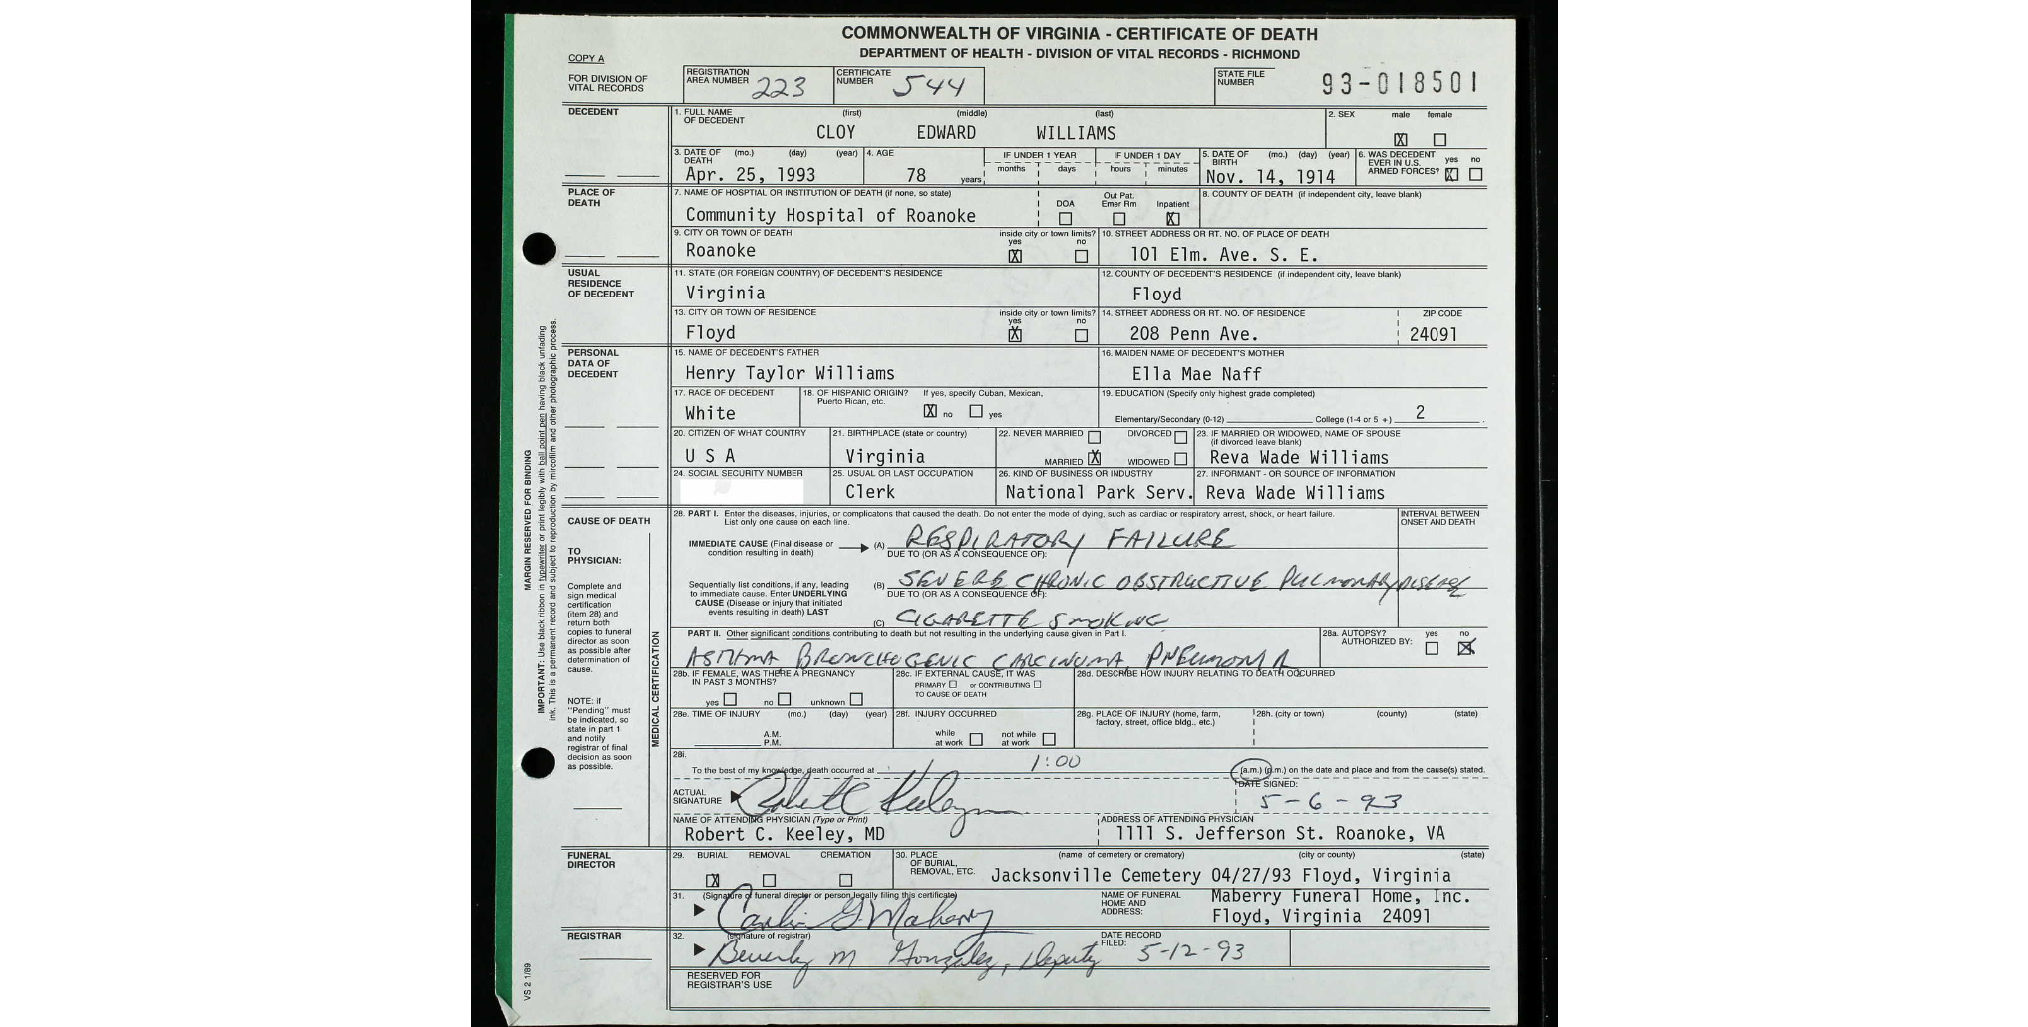 COMMONWEALTH OF VIRGINIA - CERTIFICATE OF DEATH
DEPARTMENT OF HEALTH - DIVISION OF VITAL RECORDS - RICHMOND
COPY A
FOR DIVISION OF VITAL RECORDS
REGISTRATION AREA NUMBER 223
CERTIFICATE NUMBER 544
STATE FILE NUMBER 93-018501
DECEDENT
1. FULL NAME OF DECEDENT (first) (middle) (last)
CLOY EDWARD WILLIAMS
2. SEX male X female
3. DATE OF DEATH (mo.) (day) (year)
Apr. 25, 1993
4. AGE
78 years
IF UNDER 1 YEAR months days
IF UNDER 1 DAY hours minutes
5. DATE OF BIRTH (mo.) (day) (year)
Nov. 14, 1914
6. WAS DECEDENT EVER IN U.S. ARMED FORCES? yes X no
PLACE OF DEATH
7. NAME OF HOSPTIAL OR INSTITUTION OF DEATH (if none, so state)
Community Hospital of Roanoke
DOA Out Pat. Emer Rm Inpatient X
8. COUNTY OF DEATH (if independent city, leave blank)
9. CITY OR TOWN OF DEATH
Roanoke
inside city or town limits? yes X no
10. STREET ADDRESS OR RT. NO. OF PLACE OF DEATH
101 Elm. Ave. S. E.
USUAL RESIDENCE OF DECEDENT
11. STATE (OR FOREIGN COUNTRY) OF DECEDENT'S RESIDENCE
Virginia
12. COUNTY OF DECEDENT'S RESIDENCE (if independent city, leave blank)
Floyd
13. CITY OR TOWN OF RESIDENCE
Floyd
inside city or town limits? yes X no
14. STREET ADDRESS OR RT. NO. OF RESIDENCE
208 Penn Ave.
ZIP CODE
24091
PERSONAL DATA OF DECEDENT
15. NAME OF DECEDENT'S FATHER
Henry Taylor Williams
16. MAIDEN NAME OF DECEDENT'S MOTHER
Ella Mae Naff
17. RACE OF DECEDENT
White
18. OF HISPANIC ORIGIN? If yes, specify Cuban, Mexican, Puerto Rican, etc.
X no yes
19. EDUCATION (Specify only highest grade completed)
Elementary/Secondary (0-12) College (1-4 or 5 +) 2
20. CITIZEN OF WHAT COUNTRY
U S A
21. BIRTHPLACE (state or country)
Virginia
22. NEVER MARRIED DIVORCED
MARRIED X WIDOWED
23. IF MARRIED OR WIDOWED, NAME OF SPOUSE (if divorced leave blank)
Reva Wade Williams
24. SOCIAL SECURITY NUMBER
25. USUAL OR LAST OCCUPATION
Clerk
26. KIND OF BUSINESS OR INDUSTRY
National Park Serv.
27. INFORMANT - OR SOURCE OF INFORMATION
Reva Wade Williams
CAUSE OF DEATH
TO PHYSICIAN:
Complete and sign medical certification (item 28) and return both copies to funeral director as soon as possible after determination of cause.
NOTE: If "Pending" must be indicated, so state in part 1 and notify registrar of final decision as soon as possible.
MEDICAL CERTIFICATION
28. PART I. Enter the diseases, injuries, or complicatons that caused the death. Do not enter the mode of dying, such as cardiac or respiratory arrest, shock, or heart failure.
List only one cause on each line.
INTERVAL BETWEEN ONSET AND DEATH
IMMEDIATE CAUSE (Final disease or condition resulting in death) (A) RESPIRATORY FAILURE
DUE TO (OR AS A CONSEQUENCE OF):
Sequentially list conditions, if any, leading to immediate cause. Enter UNDERLYING CAUSE (Disease or injury that initiated events resulting in death) LAST
(B) SEVERE CHRONIC OBSTRUCTIVE PULMONARY DISEASE
DUE TO (OR AS A CONSEQUENCE OF):
(C) CIGARETTE SMOKING
PART II. Other significant conditions contributing to death but not resulting in the underlying cause given in Part I.
ASTHMA BRONCHOGENIC CARCINOMA, PNEUMONIA
28a. AUTOPSY? AUTHORIZED BY: yes no X
28b. IF FEMALE, WAS THERE A PREGNANCY IN PAST 3 MONTHS?
yes no unknown
28c. IF EXTERNAL CAUSE, IT WAS
PRIMARY or CONTRIBUTING
TO CAUSE OF DEATH
28d. DESCRIBE HOW INJURY RELATING TO DEATH OCCURRED
28e. TIME OF INJURY (mo.) (day) (year)
A.M.
P.M.
28f. INJURY OCCURRED
while at work not while at work
28g. PLACE OF INJURY (home, farm, factory, street, office bldg., etc.)
28h. (city or town) (county) (state)
28i.
To the best of my knowledge, death occurred at 1:00 (a.m.) (p.m.) on the date and place and from the cause(s) stated.
ACTUAL SIGNATURE Robert C Keeley
DATE SIGNED:
5-6-93
NAME OF ATTENDING PHYSICIAN (Type or Print)
Robert C. Keeley, MD
ADDRESS OF ATTENDING PHYSICIAN
1111 S. Jefferson St. Roanoke, VA
FUNERAL DIRECTOR
29. BURIAL X REMOVAL CREMATION
30. PLACE OF BURIAL, REMOVAL, ETC. (name of cemetery or crematory) (city or county) (state)
Jacksonville Cemetery 04/27/93 Floyd, Virginia
31. (Signature of funeral director or person legally filing this certificate)
NAME OF FUNERAL HOME AND ADDRESS:
Maberry Funeral Home, Inc.
Floyd, Virginia 24091
REGISTRAR
32. (signature of registrar)
Beverly M Gonzalez, Deputy
DATE RECORD FILED: 5-12-93
RESERVED FOR REGISTRAR'S USE
VS 2 1/89
MARGIN RESERVED FOR BINDING
IMPORTANT: Use black ribbon in typewriter or print legibly with ball point pen having black unfading
ink. This is a permanent record and subject to reproduction by mircofilm and other photographic process.